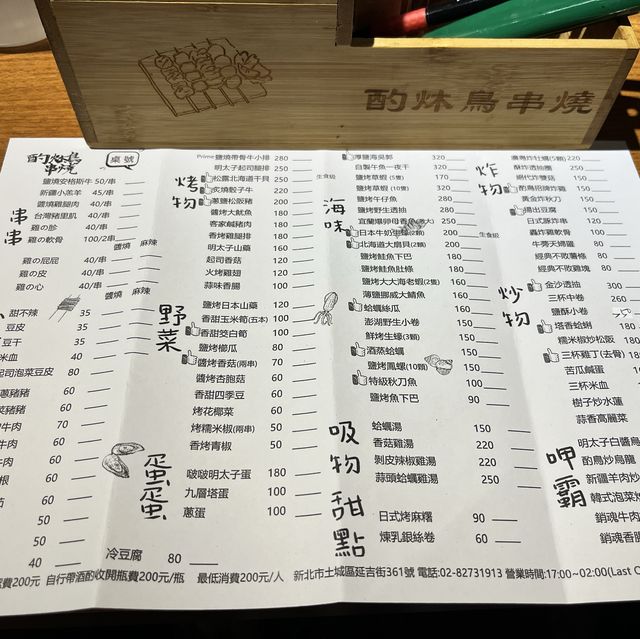 酌炑鳥串燒
酌炑鳥串燒
桌號
串串
鹽燒安格斯牛 50/串
新疆小羔羊 45/串
醬燒雞腿肉 40/串
台灣豬里肌 40/串
雞の胗 40/串
雞の軟骨 100/2串
醬燒 麻辣
雞の屁屁 40/串
雞の皮 40/串
雞の心 40/串
醬燒 麻辣
甜不辣 35
豆皮 35
豆干 35
米血 40
起司泡菜豆皮 80
蔥豬豬 60
豬豬 60
牛肉 70
牛肉 60
根 60
60
50
50
40
冷豆腐 80
烤物
Prime鹽燒帶骨牛小排 280
明太子起司腿排 250
松露北海道干貝 250 生食級
炙燒骰子牛 220
蔥鹽松阪豬 200
鹽烤大魷魚 180
客家鹹豬肉 180
香烤雞腿排 180
明太子山藥 160
起司香菇 120
火烤雞翅 120
蒜味香腸 100
野菜
鹽烤日本山藥 120
香甜玉米筍(五本) 100
香甜茭白筍 100
鹽烤櫛瓜 80
醬烤香菇(兩串) 70
醬烤杏胞菇 60
香甜四季豆 60
烤花椰菜 60
烤糯米椒(兩串) 50
香烤青椒 50
蛋蛋
啵啵明太子蛋 180
九層塔蛋 100
蔥蛋 100
海味
厚鹽海吳郭 320
自製午魚一夜干 320
鹽烤草蝦 (5隻) 170
鹽烤草蝦 (10隻) 320
鹽烤午仔魚 250
鹽烤野生透抽 250
宜蘭爆卵母香魚(微大) 250
日本牛奶生蠔(2顆) 200 生食級
北海道大扇貝(2顆) 200
鹽烤鮭魚下巴 180
鹽烤鮭魚肚條 180
鹽烤大大海老蝦(2隻) 160
薄鹽挪威大鯖魚 160
蛤蠣絲瓜 160
澎湖野生小卷 150
鮮烤生蠔(3顆) 150
酒蒸蛤蠣 150
鹽烤鳳螺(10顆) 150
特級秋刀魚 100
鹽烤魚下巴 90
吸物
蛤蠣湯 150
香菇雞湯 220
剝皮辣椒雞湯 220
蒜頭蛤蠣雞湯 250
甜點
日式烤麻糬 90
煉乳銀絲卷 60
炸物
廣島炸牡蠣(5顆) 220
酥炸透抽圈 250
絕代炸雙菇 150
酌鳥甩撓炸雞 150
黃金炸秋刀 150
揚出豆腐 150
日式唐炸串 120
轟炸雞軟骨 100
牛蒡天婦羅 80
經典不敗薯條 80
經典不敗雞塊 80
炒物
金沙透抽 300
三杯中卷 260
鹽酥小卷
塔香蛤蜊 180
糯米椒炒松阪 180
三杯雞丁(去骨) 180
苦瓜鹹蛋
三杯米血
樹子炒水蓮
蒜香高麗菜
呷霸
明太子白醬烏
酌鳥炒烏龍
新疆羊肉炒
韓式泡菜炒
銷魂牛肉
銷魂香腸
費200元 自行帶酒酌收開瓶費200元/瓶 最低消費200元/人 新北市土城區延吉街361號 電話:02-82731913 營業時間:17:00~02:00(Last O